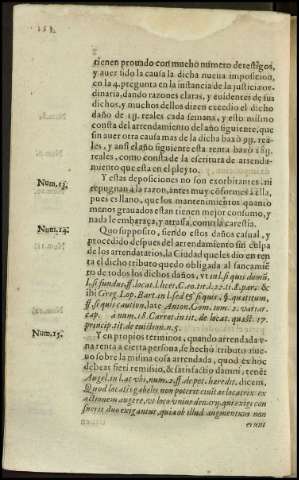 tienen prouado con mucho numero de testigos,
y auer sido la causa la dicha nueua imposicion,
en la 4. pregunta en la instancia de la justicia or-
dinaria, dando razones claras, y euidentes de sus
dichos, y muchos dellos dizen excedio el dicho
daño de reales cada semana, y esto mismo
consta del arrendamiento del año siguiente, que
sin auer otra causa mas de la dicha baxò rea-
les, y ansi el año siguiente esta renta baxò
reales, como consta de la escritura de arrenda-
miento que esta en el pleyto.
Num. 13. Y estas deposiciones no son exorbitantes, ni
repugnan à la razon, antes muy cõformes à ella,
pues es llano, que los mantenimientos quanto
menos grauados estan tienen mejor consumo, y
nada le embaraça, y atrassa, como la carestia.
Num. 14. Quo supposito, siendo estos daños casual, y
procedido despues del arrendamiento sin culpa
de los arrendatarios, la Ciudad que les dio en ren
ta el dicho tributo quedo obligada al saneamiẽ-
to de todos los dichos daños, vt in l. si quis domũ,
l. si fundus, ff. locat. l. hæc. C. eo. tit. l. 22. tit. 8. par. &
ibi Greg. Lop. Bart. in l. sed & si quis, §. quæsitum,
ff. si quis cautio, late Anton. Gom. tom. 2. variar.
cap. a num. 18. Carroc. in tit. de locat. quæst. 17.
princip. tit. de emition. n. 5.
Num. 15. Y en propios terminos, quando arrendada v-
na renta a cierta persona, se hecho tributo nue-
uo sobre la misma cosa arrendada, quod ex hoc
debeat fieri remissio, & satisfactio damni, tenẽt
Angel. in l. ac vbi, num. 2. ff. de pet. hæredit. dicem,
Quod locatis gabelis non poterit ciuitas locatrix ex
actionem augere, vt loco vnius denarij, qui exigi con
sueuit duo exigantur, quia ob illud augmentum non
erunt